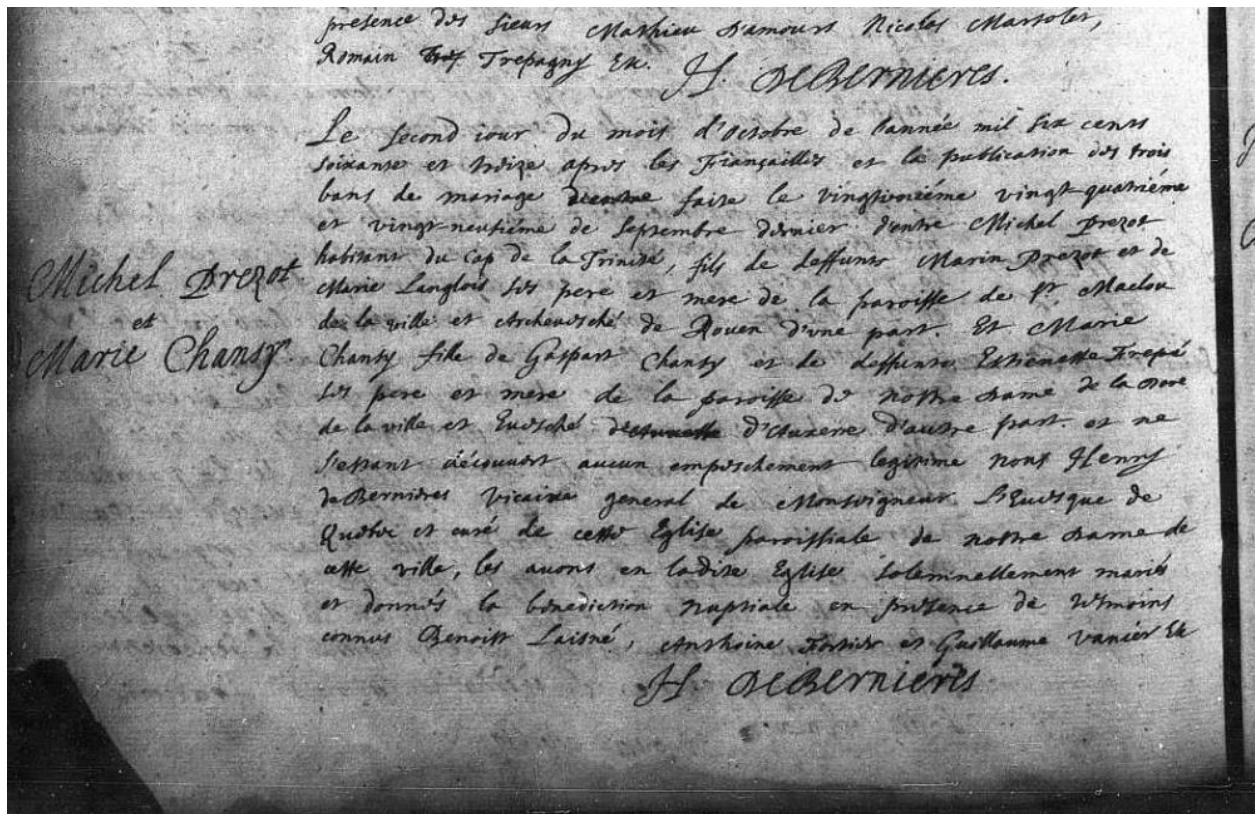 presence des sieurs Mathieu Damours Nicolas Marsolet,
Romain Trepagny Etc.
H. DeBernieres.
Le second iour du mois d'octobre de l'année mil six cents
soixante et treize apres les Fiançailles et la publication des trois
bans de mariage faite le vingtuniéme vingt-quatriéme
et vingt-neufiéme de septembre dernier d'entre Michel Prezot
habitant du Cap de la Trinité, fils de deffunts Marin Prezot et de
Marie Langlois ses pere et mere de la paroisse de St Maclou
de la ville et Archevesché de Rouen d'vne part. Et Marie
Chansy fille de Gaspart Chansy et de deffunte Estiennette Frepé
ses pere et mere de la paroisse de nostre Dame de la
de la ville et Euesché d'Auxerre d'autre part. et ne
s'estant découuert aucun empeschement legitime nous Henry
de Bernieres Vicaire general de Monseigneur L'Euesque de
Quebec et curé de cette Eglise paroissiale de nostre Dame de
cette ville, les auons en ladite Eglise solemnellement mariés
et donnés la benediction nuptiale en presence de temoins
connus Benoist Laisné, Anthoine Fortier et Guillaume Vanier Etc
H. DeBernieres
Michel Prezot
et
Marie Chansy.